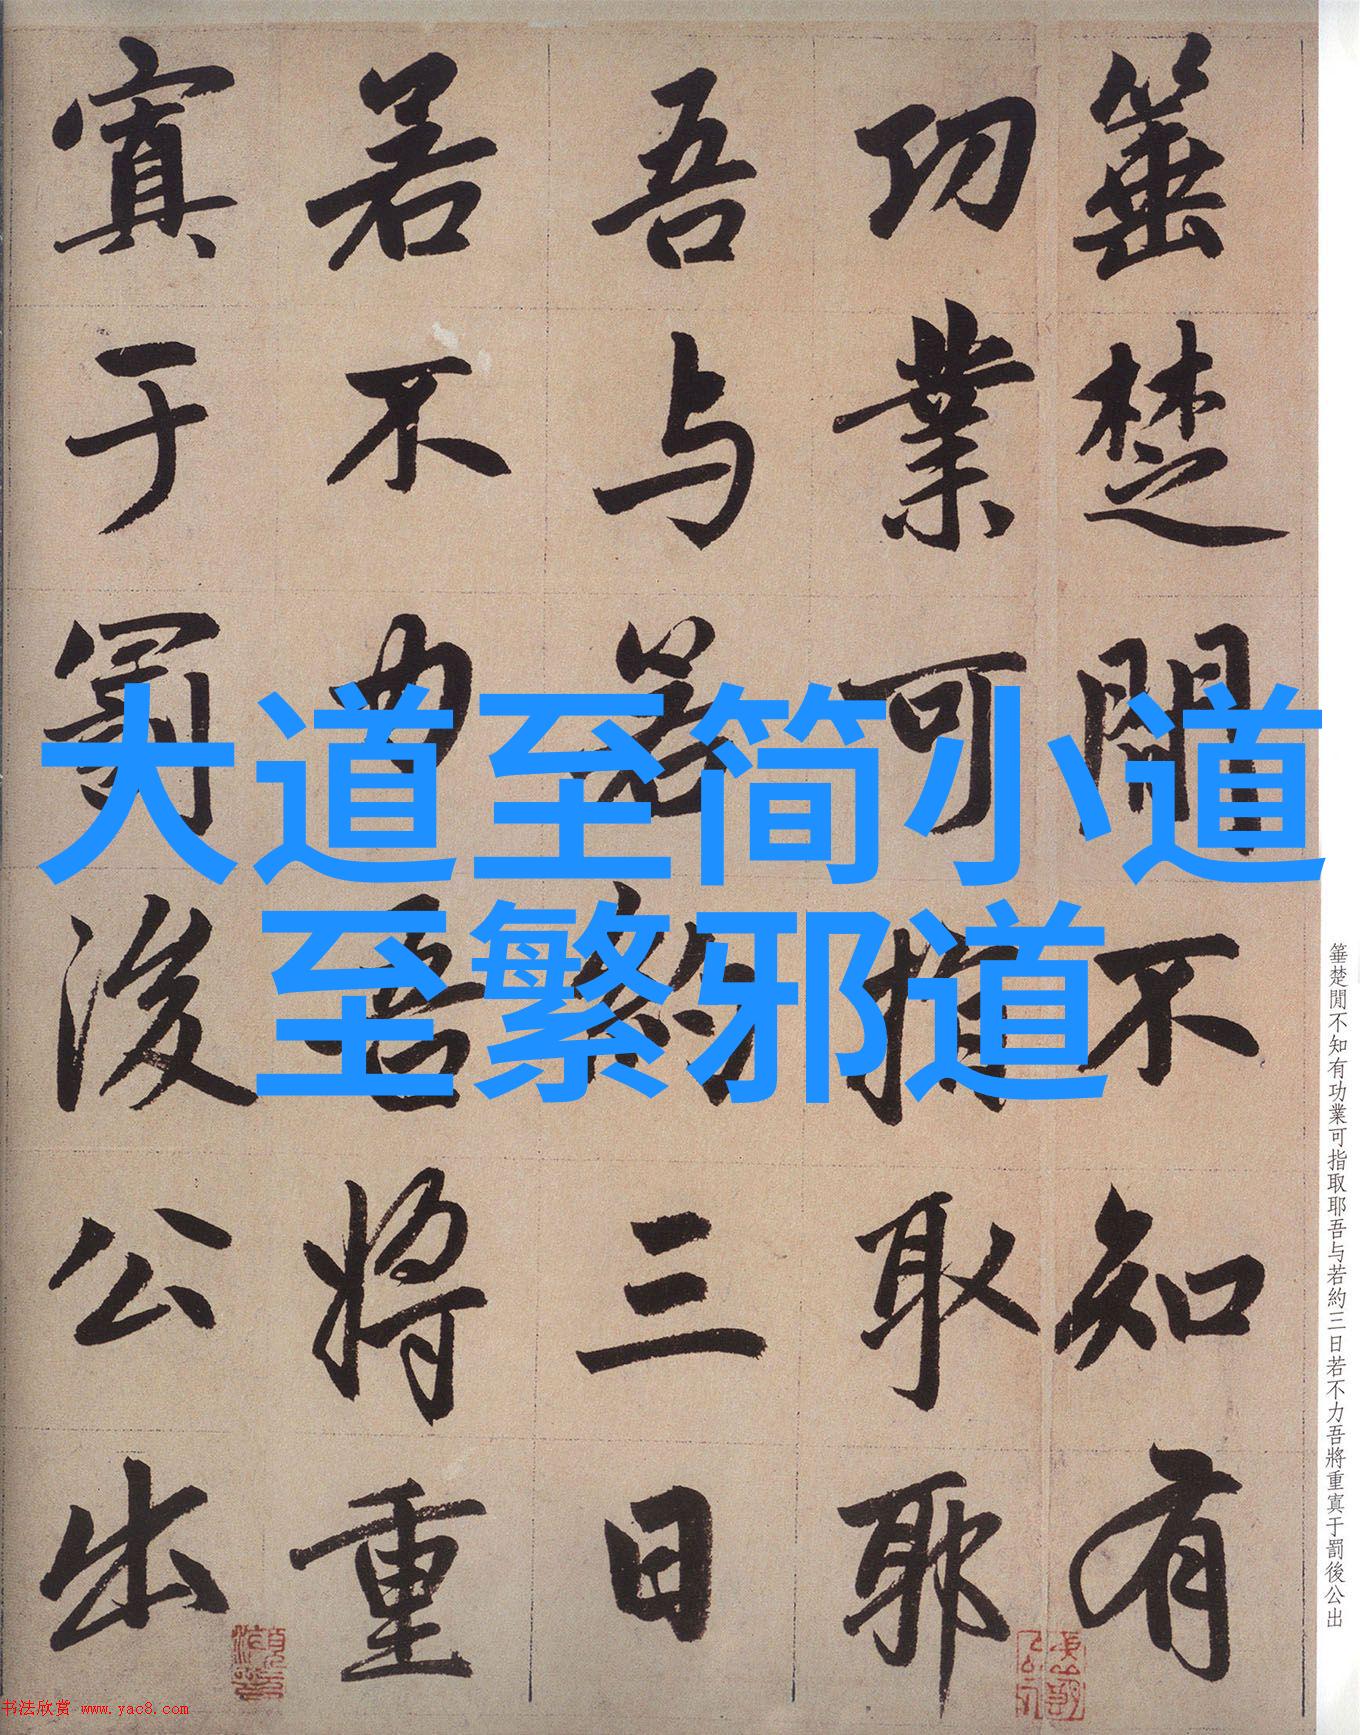 箠楚閒不知有
功業可指取耶
吾与若約三日
若不力吾將重
寘于罰後公出
大道至简小道
至繁邪道
箠楚閒不知有功業可指取耶吾与若約三日若不力吾將重寘于罰後公出
书法欣赏 www.yac8.com